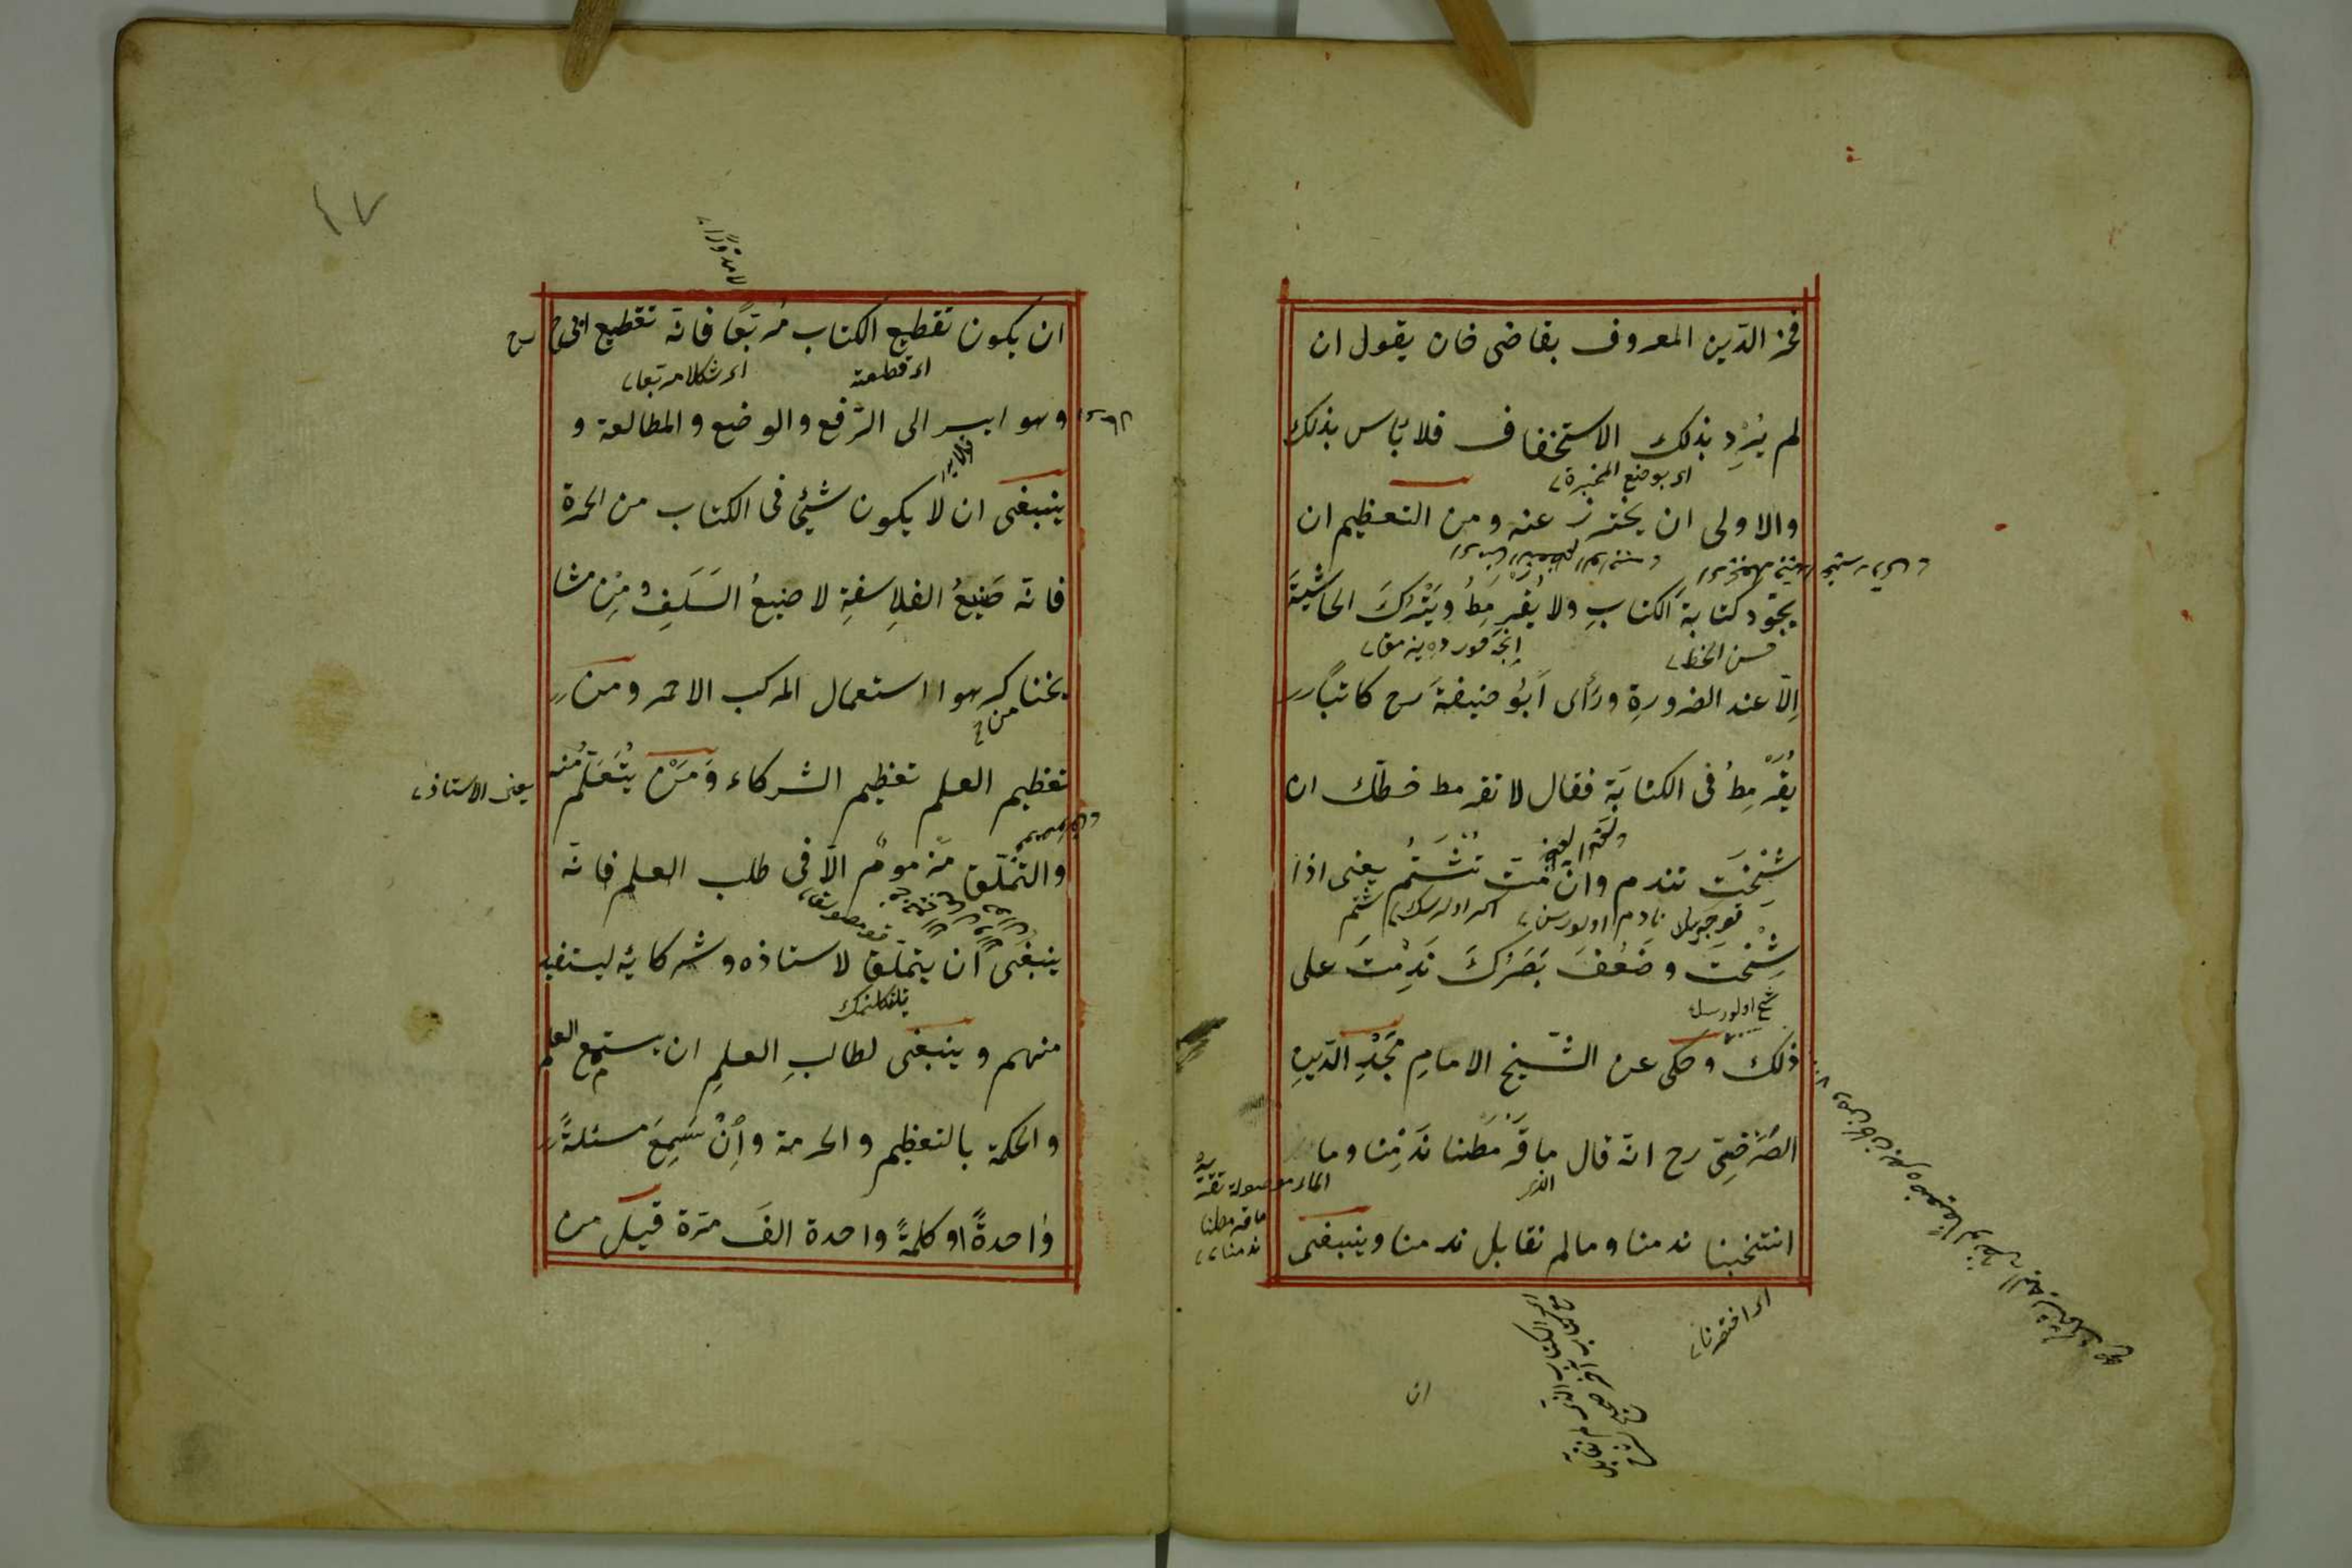 فخر الدّين المعروف بقاضى خان يقول ان
لم يُرِد بذلك الاستخفاف فلا باس بذلك
اى بوضع المحبرة
والاولى ان يحترز عنه ومن التعظيم ان
يجوّد كتابةَ الكتابِ ولا يُقَرْمِطُ ويَتْرُكَ الحاشيَةَ
حسن الخط
اِلّا عند الضرورةِ ورَأى اَبُو حنيفةَ رح كاتباً
يُقَرْمِطُ فى الكتابَة فقال لا تقرمط خطّك ان
شِخْتَ تندم وان مُتَّ تُشْتَمُ يعنى اذا
شِخْتَ وضَعُفَ بَصَرُكَ نَدِمْتَ على
شيخ اولورسك
ذلك وحكى عن الشّيخ الامامِ مَجْدِ الدّينِ
الصَّرْخَتِىّ رح انّه قال ما قَرْمَطنا نَدَمِنا وما
الذى
الماء موصولة تقديره
ما قرمطنا
ندمنا
انتخبنا ندمنا ومالم نقابل ندمنا وينبغى
اى اختصرنا
ان
٤٧
لا مدوّرًا
ان يكون تقطيع الكتاب مُربّعًا فانّه تقطيع ابى ح رح
اى قطعته
اى شكلا مربّعا
وهو ايسر الى الرّفع والوضع والمطالعة و
ينبغى ان لا يكون شيئ فى الكتاب من الحمرة
فانّه صَنِيعُ الفلاسفةِ لا صنيعُ السَلَفِ ومِن مشا
يخنا كرهوا استعمال المركب الاحمر ومن
من
تعظيم العلم تعظيم الشركاء وَمَنْ يَتَعَلّم منه
يعنى الاستاذ
والتملّق مذموم الّا فى طلب العلم فانّه
ينبغى اَن يتملّق لاستاذه وشركائه ليستفيد
منهم وينبغى لطالبِ العلمِ ان يستمع العلم
والحكمة بالتعظيم والحرمة واِنْ سَمِعَ مسئلةً
واحدةً او كلمةً واحدة الفَ مرّة قيل من